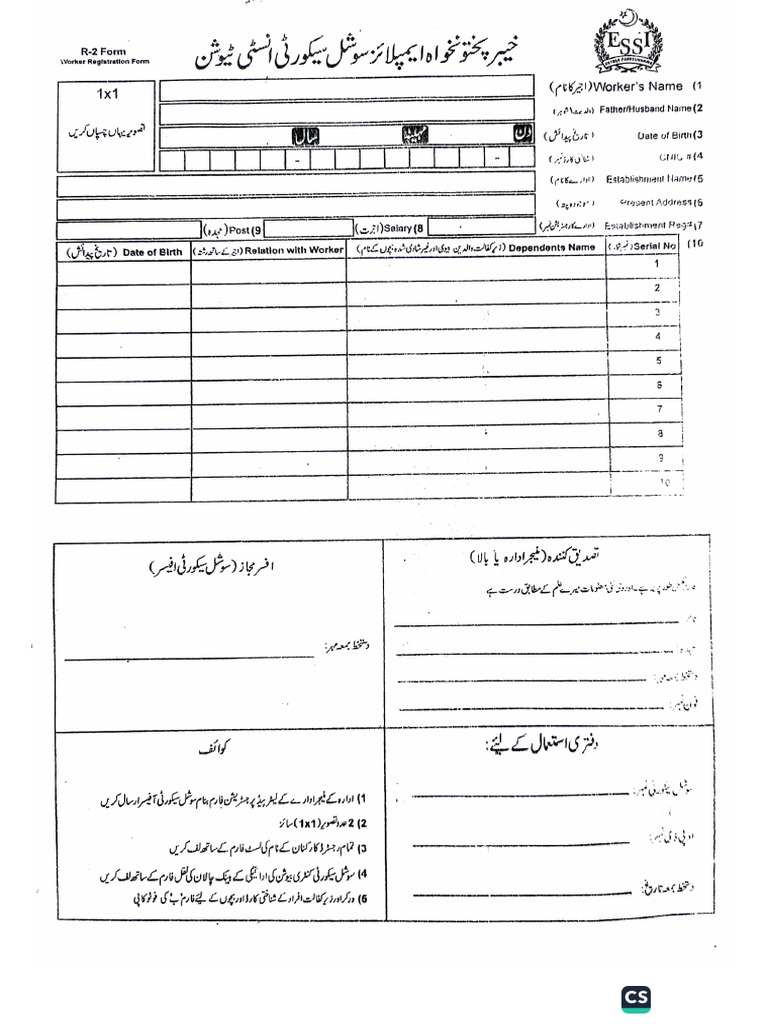 R-2 Form
Worker Registration Form
خیبر پختونخواہ ایمپلائز سوشل سیکورٹی انسٹی ٹیوشن
ESSI
1x1
تصویر یہاں چسپاں کریں
1) Worker's Name (اجیر کا نام)
2) Father/Husband Name
3) Date of Birth (تاریخ پیدائش) دن مہینہ سال
4) CNIC #
5) Establishment Name (ادارے کا نام)
6) Present Address (موجودہ پتہ)
7) Establishment Reg# (ادارے کا رجسٹریشن نمبر)
8) Salary (اجرت)
9) Post (عہدہ)
10) Serial No (نمبر شمار) Dependents Name (زیر کفالت والدین بیوی اور غیر شادی شدہ بچوں کے نام) Relation with Worker (اجیر کے ساتھ رشتہ) Date of Birth (تاریخ پیدائش)
1
2
3
4
5
6
7
8
9
10
تصدیق کنندہ (منیجر ادارہ یا بالا)
معلومات میرے علم کے مطابق درست ہے
نام
عہدہ
دستخط بمعہ مہر:
فون نمبر:
افسر مجاز (سوشل سیکورٹی افیسر)
دستخط بمعہ مہر:
دفتری استعمال کے لیئے:
سوشل سیکورٹی نمبر:
او پی ڈی نمبر:
دستخط بمعہ تاریخ:
کوائف
1) ادارہ کے منیجر ادارے کے لیٹر ہیڈ پر رجسٹریشن فارم بنام سوشل سیکورٹی آفیسر ارسال کریں
2) 2 عدد تصویر (1x1) سائز
3) تمام رجسٹرڈ کارکنان کے نام کی لسٹ فارم کے ساتھ لف کریں
4) سوشل سیکورٹی کنٹری بیوشن کی ادائیگی کے بینک چالان کی نقل فارم کے ساتھ لف کریں
5) ورکر اور زیر کفالت افراد کے شناختی کارڈ اور بچوں کے لیئے فارم ب کی فوٹو کاپی
CS